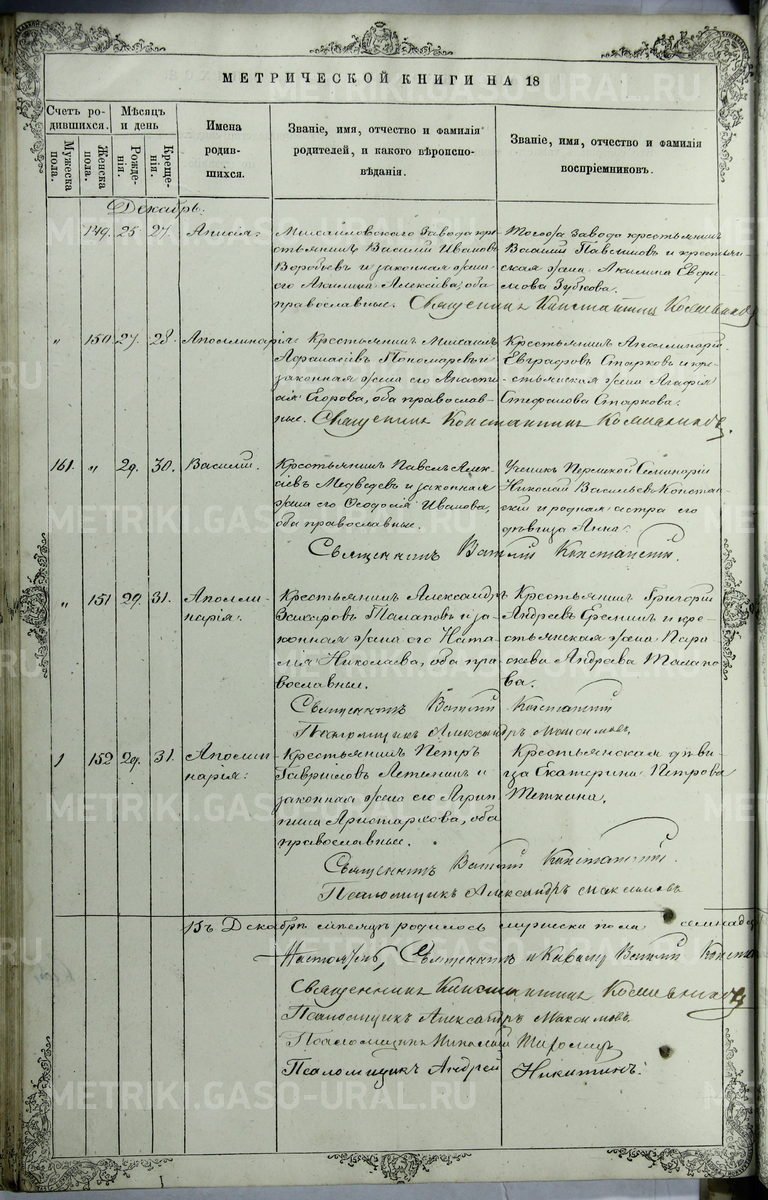 МЕТРИЧЕСКОЙ КНИГИ НА 18
Счетъ родившихся.
Мужеска пола.
Женска пола.
Мѣсяцъ и день
Рожденія.
Крещенія.
Имена родившихся.
Званіе, имя, отчество и фамилія родителей, и какого вѣроисповѣданія.
Званіе, имя, отчество и фамилія воспріемниковъ.
Декабрь.
149. 25 27. Анисія:
Михайловскаго Завода крестьянинъ Василій Ивановъ
Воробьевъ и законная жена
его Акилина Алексѣева, оба
православные.
Тогоже завода крестьянинъ
Василій Павлиновъ и крестьянская жена Акилина
Зубкова.
Священникъ Константинъ
„ 150 27. 28. Аполлинарія:
Крестьянинъ Михаилъ
Афанасьевъ Пономаревъ и
законная жена его Анастасія Егорова, оба православные.
Крестьянинъ Аполлинарій
Евграфовъ Старковъ и крестьянская жена Агафія
Стефанова Старкова.
Священникъ Константинъ
161. „ 29. 30. Василій.
Крестьянинъ Павелъ Алексѣевъ Медведевъ и законная
жена его Ѳеодосія Иванова,
оба православные.
Ученикъ Пермской Семинаріи
Николай Васильевъ
и родная сестра его
дѣвица Анна.
Священникъ
„ 151 29. 31. Аполлинарія:
Крестьянинъ Александръ
Захаровъ Талаповъ и законная жена его Наталія Николаева, оба православные.
Крестьянинъ Григорій
Андреевъ Еремин и крестьянская жена Параскева Андреева Талапова.
Священникъ
Псаломщикъ Александръ Максимовъ
152 29. 31. Аполлинарія:
Крестьянинъ Петръ
Гавриловъ и
законная жена его Агрипина Аристархова, оба
православные.
Крестьянская дѣвица Екатерина Петрова
Священникъ
Псаломщикъ Александръ Максимовъ
Въ Декабрѣ мѣсяцѣ родилось мужеска пола
Священникъ
Священникъ Константинъ
Псаломщикъ Александръ Максимовъ
Псаломщикъ Николай
Псаломщикъ Андрей Никитинъ.
METRIKI.GASO-URAL.RU